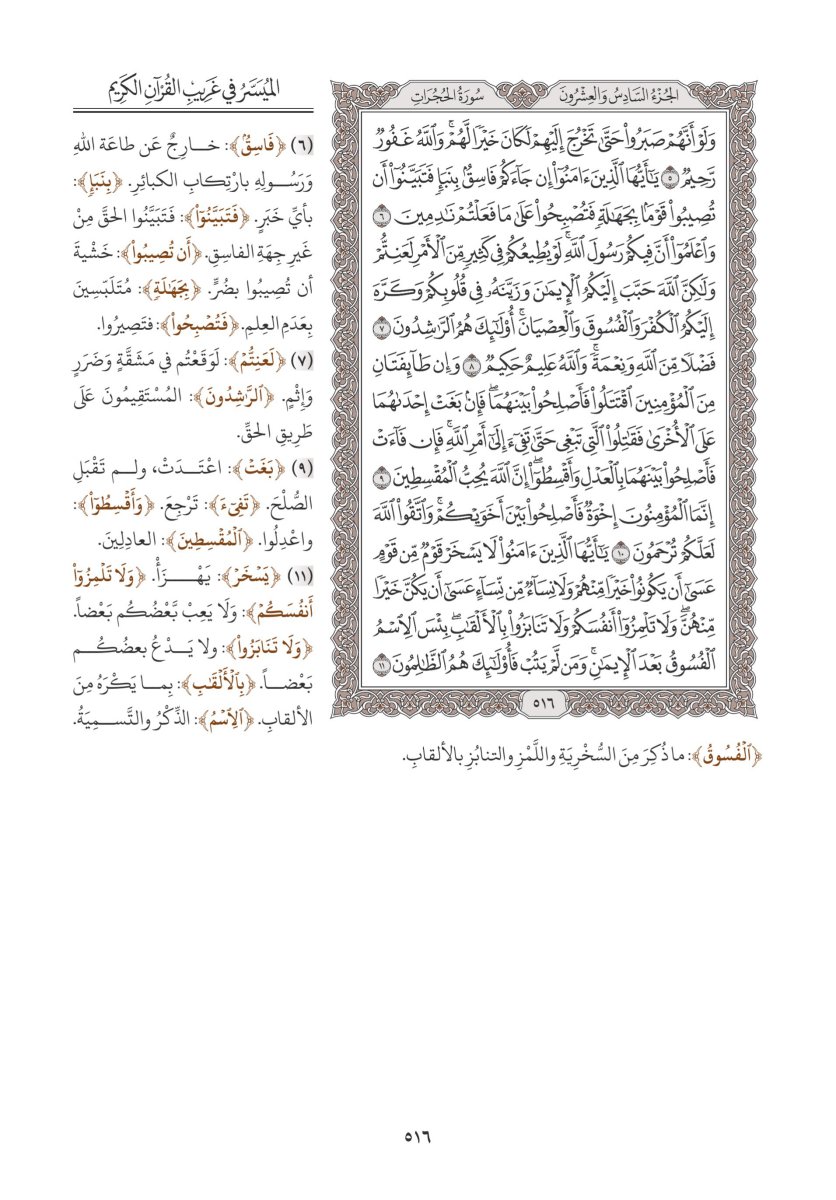 الجُزْءُ السَّادِسُ وَالعِشْرُونَ
سُورَةُ الحُجُرَاتِ
وَلَوْ أَنَّهُمْ صَبَرُوا۟ حَتَّىٰ تَخْرُجَ إِلَيْهِمْ لَكَانَ خَيْرًا لَّهُمْ ۚ وَٱللَّهُ غَفُورٌ
رَّحِيمٌ ٥ يَـٰٓأَيُّهَا ٱلَّذِينَ ءَامَنُوٓا۟ إِن جَآءَكُمْ فَاسِقٌۢ بِنَبَإٍ فَتَبَيَّنُوٓا۟ أَن
تُصِيبُوا۟ قَوْمًۢا بِجَهَـٰلَةٍ فَتُصْبِحُوا۟ عَلَىٰ مَا فَعَلْتُمْ نَـٰدِمِينَ ٦
وَٱعْلَمُوٓا۟ أَنَّ فِيكُمْ رَسُولَ ٱللَّهِ ۚ لَوْ يُطِيعُكُمْ فِى كَثِيرٍ مِّنَ ٱلْأَمْرِ لَعَنِتُّمْ
وَلَـٰكِنَّ ٱللَّهَ حَبَّبَ إِلَيْكُمُ ٱلْإِيمَـٰنَ وَزَيَّنَهُۥ فِى قُلُوبِكُمْ وَكَرَّهَ
إِلَيْكُمُ ٱلْكُفْرَ وَٱلْفُسُوقَ وَٱلْعِصْيَانَ ۚ أُو۟لَـٰٓئِكَ هُمُ ٱلرَّٰشِدُونَ ٧
فَضْلًا مِّنَ ٱللَّهِ وَنِعْمَةً ۚ وَٱللَّهُ عَلِيمٌ حَكِيمٌ ٨ وَإِن طَآئِفَتَانِ
مِنَ ٱلْمُؤْمِنِينَ ٱقْتَتَلُوا۟ فَأَصْلِحُوا۟ بَيْنَهُمَا ۖ فَإِنۢ بَغَتْ إِحْدَىٰهُمَا
عَلَى ٱلْأُخْرَىٰ فَقَـٰتِلُوا۟ ٱلَّتِى تَبْغِى حَتَّىٰ تَفِىٓءَ إِلَىٰٓ أَمْرِ ٱللَّهِ ۚ فَإِن فَآءَتْ
فَأَصْلِحُوا۟ بَيْنَهُمَا بِٱلْعَدْلِ وَأَقْسِطُوٓا۟ ۖ إِنَّ ٱللَّهَ يُحِبُّ ٱلْمُقْسِطِينَ ٩
إِنَّمَا ٱلْمُؤْمِنُونَ إِخْوَةٌ فَأَصْلِحُوا۟ بَيْنَ أَخَوَيْكُمْ ۚ وَٱتَّقُوا۟ ٱللَّهَ
لَعَلَّكُمْ تُرْحَمُونَ ١٠ يَـٰٓأَيُّهَا ٱلَّذِينَ ءَامَنُوا۟ لَا يَسْخَرْ قَوْمٌ مِّن قَوْمٍ
عَسَىٰٓ أَن يَكُونُوا۟ خَيْرًا مِّنْهُمْ وَلَا نِسَآءٌ مِّن نِّسَآءٍ عَسَىٰٓ أَن يَكُنَّ خَيْرًا
مِّنْهُنَّ ۖ وَلَا تَلْمِزُوٓا۟ أَنفُسَكُمْ وَلَا تَنَابَزُوا۟ بِٱلْأَلْقَـٰبِ ۖ بِئْسَ ٱلِٱسْمُ
ٱلْفُسُوقُ بَعْدَ ٱلْإِيمَـٰنِ ۚ وَمَن لَّمْ يَتُبْ فَأُو۟لَـٰٓئِكَ هُمُ ٱلظَّـٰلِمُونَ ١١
٥١٦
المُيَسَّرُ فِي غَرِيبِ القُرْآنِ الكَرِيمِ
(٦) ﴿فَاسِقٌۢ﴾: خارِجٌ عَن طاعَة اللهِ
وَرَسُولِهِ بارْتِكابِ الكبائرِ. ﴿بِنَبَإٍ﴾:
بأيِّ خَبَرٍ. ﴿فَتَبَيَّنُوٓا۟﴾: فَتَبَيَّنُوا الحقَّ مِنْ
غَيرِ جِهَةِ الفاسِقِ. ﴿أَن تُصِيبُوا۟﴾: خَشْيةَ
أن تُصِيبُوا بضُرٍّ. ﴿بِجَهَـٰلَةٍ﴾: مُتَلَبِّسِينَ
بِعَدَمِ العِلمِ. ﴿فَتُصْبِحُوا۟﴾: فتَصِيرُوا.
(٧) ﴿لَعَنِتُّمْ﴾: لَوَقَعْتُم في مَشَقَّةٍ وَضَرَرٍ
وَإِثْمٍ. ﴿ٱلرَّٰشِدُونَ﴾: المُسْتَقِيمُونَ عَلَى
طَرِيقِ الحقِّ.
(٩) ﴿بَغَتْ﴾: اعْتَدَتْ، ولم تَقْبَلِ
الصُّلْحَ. ﴿تَفِىٓءَ﴾: تَرْجِعَ. ﴿وَأَقْسِطُوٓا۟﴾:
واعْدِلُوا. ﴿ٱلْمُقْسِطِينَ﴾: العادِلِينَ.
(١١) ﴿يَسْخَرْ﴾: يَهْزَأْ. ﴿وَلَا تَلْمِزُوٓا۟
أَنفُسَكُمْ﴾: وَلَا يَعِبْ بَّعْضُكُم بَعْضاً.
﴿وَلَا تَنَابَزُوا۟﴾: ولا يَدْعُ بعضُكُم
بَعْضاً. ﴿بِٱلْأَلْقَـٰبِ﴾: بِما يَكْرَهُ مِنَ
الألقابِ. ﴿ٱلِٱسْمُ﴾: الذِّكْرُ والتَّسمِيَةُ.
﴿ٱلْفُسُوقُ﴾: ما ذُكِرَ مِنَ السُّخْرِيَةِ واللَّمْزِ والتنابُزِ بالألقابِ.
٥١٦